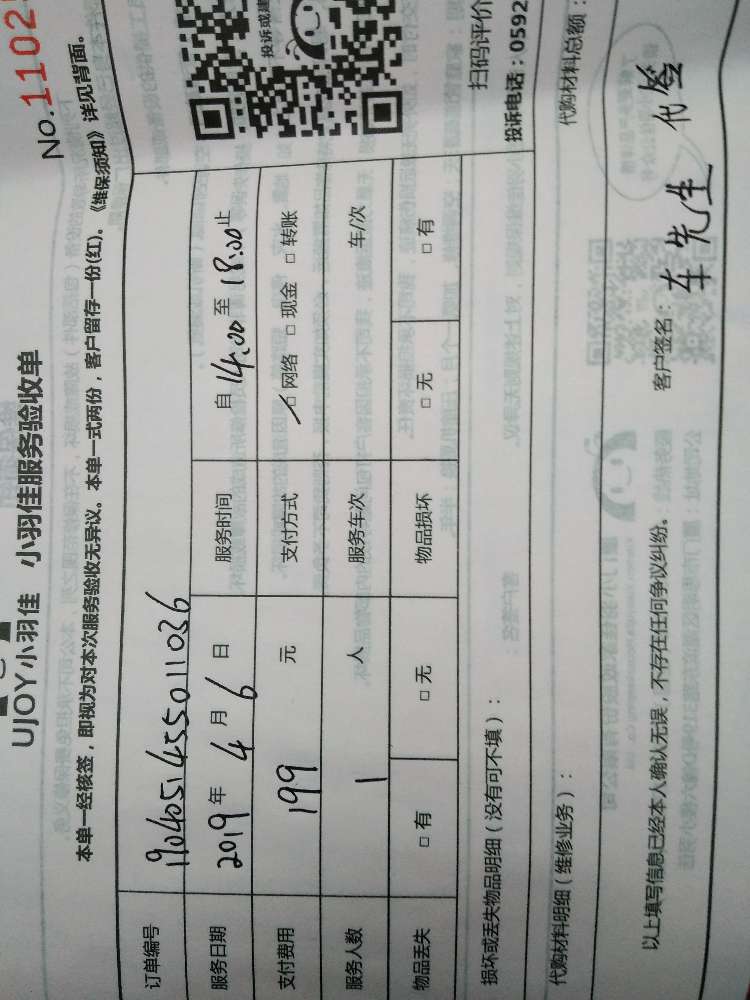 No.1102
UJOY小羽佳 小羽佳服务验收单
本单一经核签，即视为对本次服务验收无异议。本单一式两份，客户留存一份(红)。《维保须知》详见背面。
订单编号 1904051455011036
服务日期 2019年4月6日 服务时间 自14:00至18:00止
支付费用 199 元 支付方式 □网络 □现金 □转账
服务人数 1 人 服务车次 车/次
物品丢失 □有 □无 物品损坏 □无 □有
损坏或丢失物品明细（没有可不填）：
投诉或建
扫码评价
投诉电话：0592
代购材料明细（维修业务）： 代购材料总额：
以上填写信息已经本人确认无误，不存在任何争议纠纷。 客户签名：车先生 代签